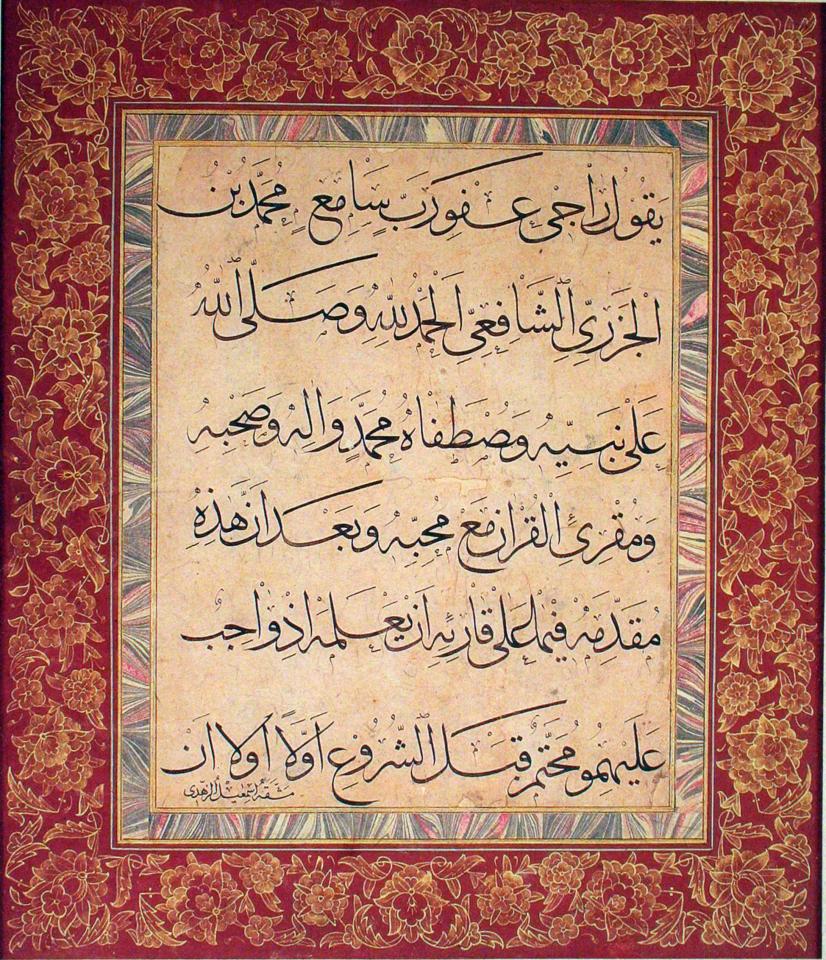 يَقُولُ رَاجِي عَفْوِ رَبٍّ سَامِعٍ مُحَمَّدُ بْنُ
الْجَزَرِيِّ الشَّافِعِيِّ الْحَمْدُ لِلَّهِ وَصَلَّى اللَّهُ
عَلَى نَبِيِّهِ وَمُصْطَفَاهُ مُحَمَّدٍ وَآلِهِ وَصَحْبِهِ
وَمُقْرِئِ الْقُرْآنِ مَعْ مُحِبِّهِ وَبَعْدُ إِنَّ هَذِهِ
مُقَدِّمَهْ فِيمَا عَلَى قَارِئِهِ أَنْ يَعْلَمَهْ إِذْ وَاجِبٌ
عَلَيْهِمُو مُحَتَّمٌ قَبْلَ الشُّرُوعِ أَوَّلًا أولا أَنْ
مشقه إسمعيل الزهدى